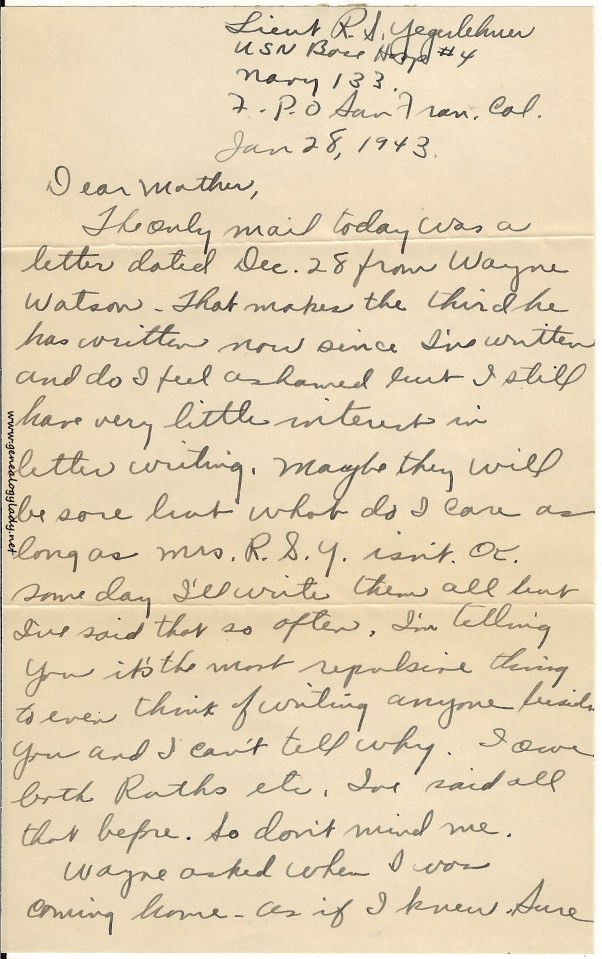 Lieut R. S. Yegerlehner
USN Base Hosp #4
Navy 133.
F.P.O San Fran. Cal.
Jan 28, 1943.
Dear Mother,
The only mail today was a
letter dated Dec. 28 from Wayne
Watson - That makes the third he
has written now since I've written
and do I feel ashamed but I still
have very little interest in
letter writing. Maybe they will
be sore but what do I care as
long as Mrs. R. S. Y. isn't. OK.
some day I'll write them all but
I've said that so often. I'm telling
you it's the most repulsive thing
to even think of writing anyone beside
you and I can't tell why. I owe
both Ruths etc. I've said all
that before. So don't mind me.
Wayne asked when I was
coming home - as if I knew. Sure
www.genealogylady.net